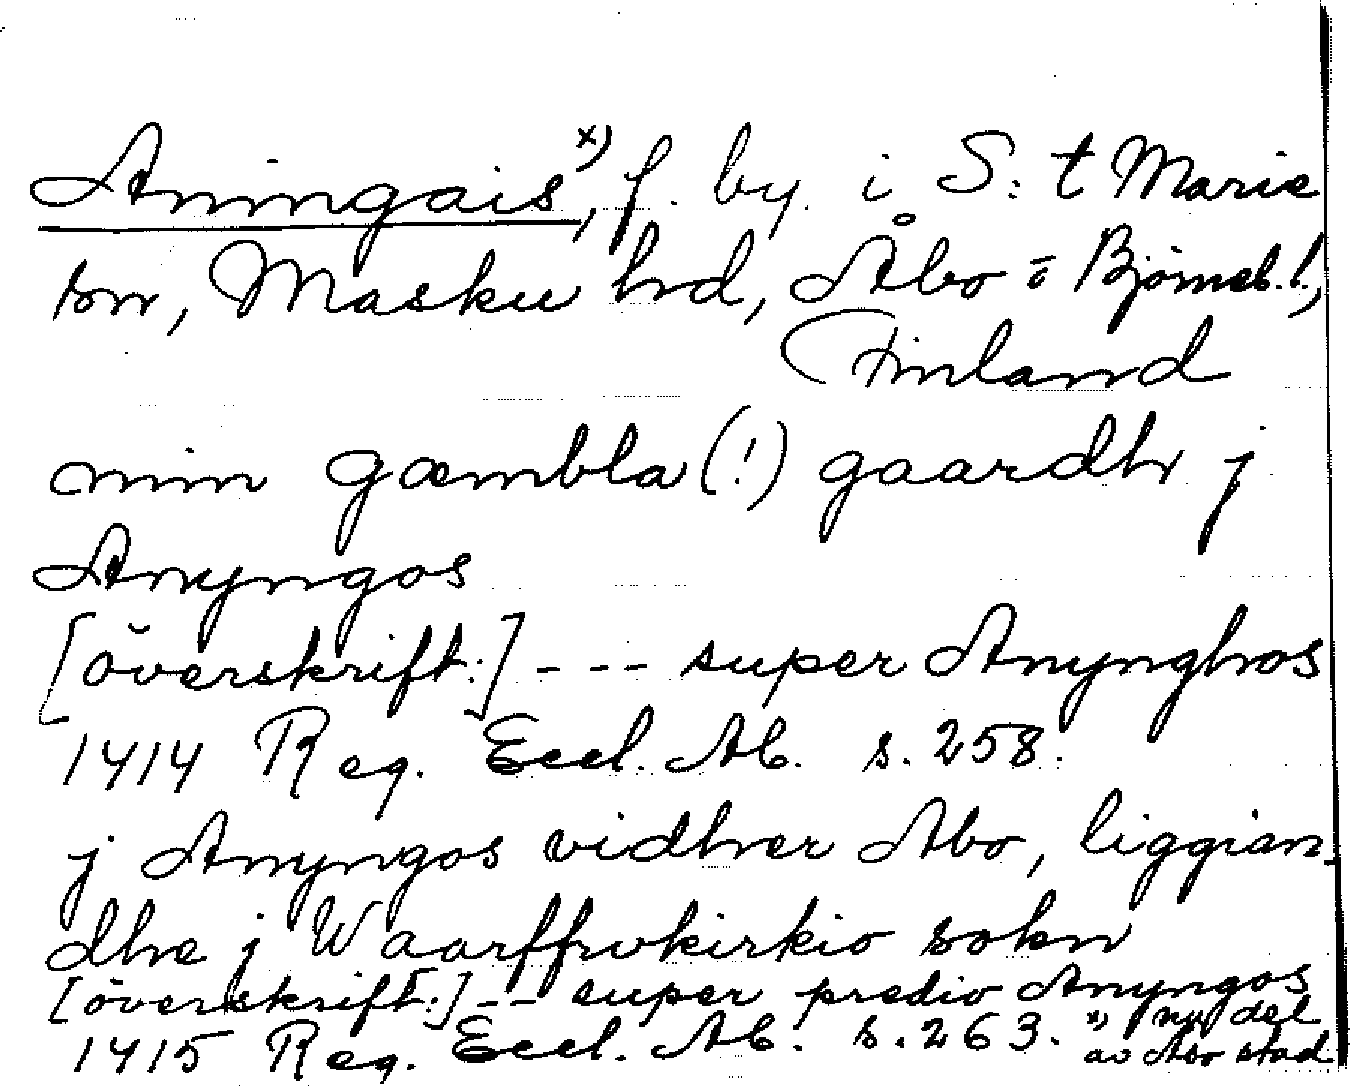 Aningais x), f. by. i S:t Marie
sn, Masku hd, Åbo o Björneb. l.,
Finland
min gœmbla (!) gaardh j
Anyngos
[överskrift:] --- super Anynghos
1414 Reg. Eccl. Ab. s. 258.
j Anyngos vidher Abo, liggian-
dhe j Waarffrvkirkio sokn
[överskrift:] --- super predio Anyngos
1415 Reg. Eccl. Ab. s. 263.
x) nu del
av Åbo stad